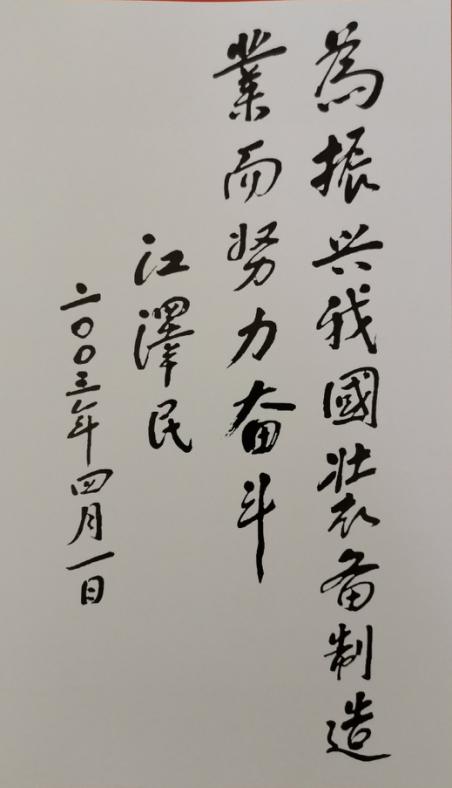 為振兴我國装备制造
業而努力奋斗
江澤民
二〇〇三年四月一日